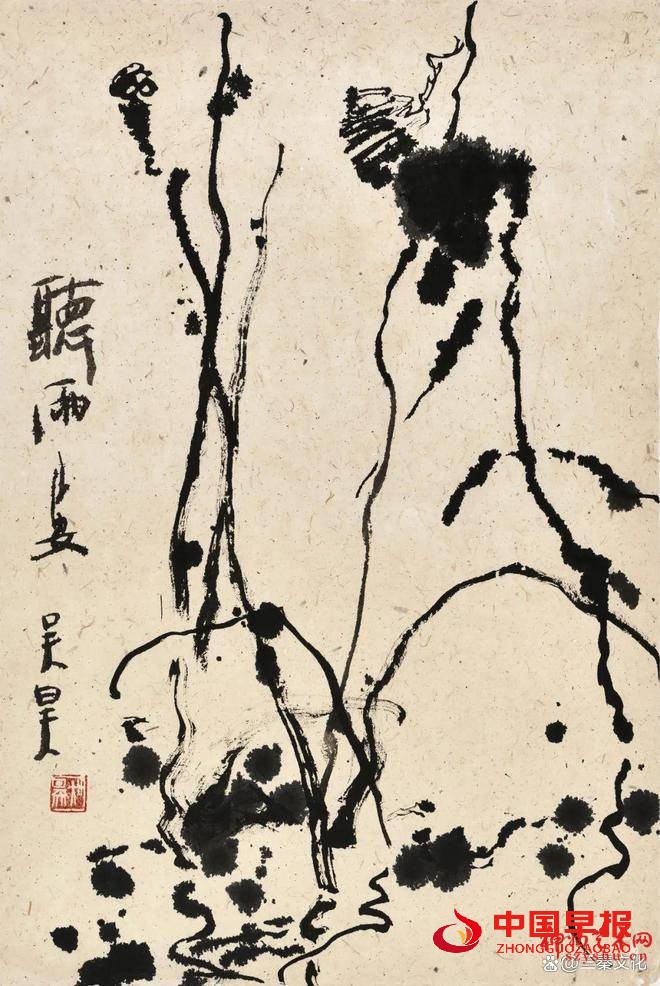 聽雨长安
吴昊
中国早报
ZHONGGUOZAOBAO
@三秦文化